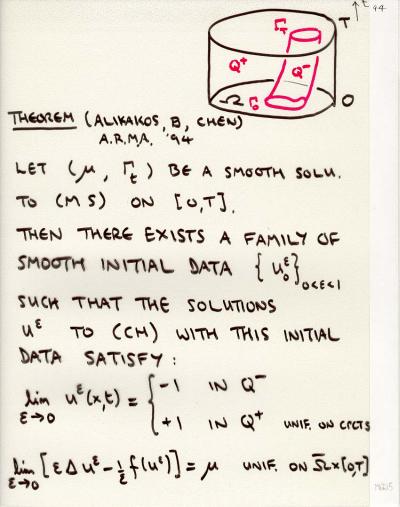 t 94
Γ_T T
Q⁺ Q⁻
Ω Γ₀ O
THEOREM (ALIKAKOS, B, CHEN)
A.R.M.A. '94
LET (μ, Γ_t) BE A SMOOTH SOLU.
TO (MS) ON [0,T].
THEN THERE EXISTS A FAMILY OF
SMOOTH INITIAL DATA {u₀^ε}_{0<ε<1}
SUCH THAT THE SOLUTIONS
u^ε TO (CH) WITH THIS INITIAL
DATA SATISFY:
lim_{ε→0} u^ε(x,t) = { -1 IN Q⁻
+1 IN Q⁺ UNIF. ON CPCTS
lim_{ε→0} [ε Δ u^ε - 1/ε f(u^ε)] = μ UNIF. ON Ω̄×[0,T]